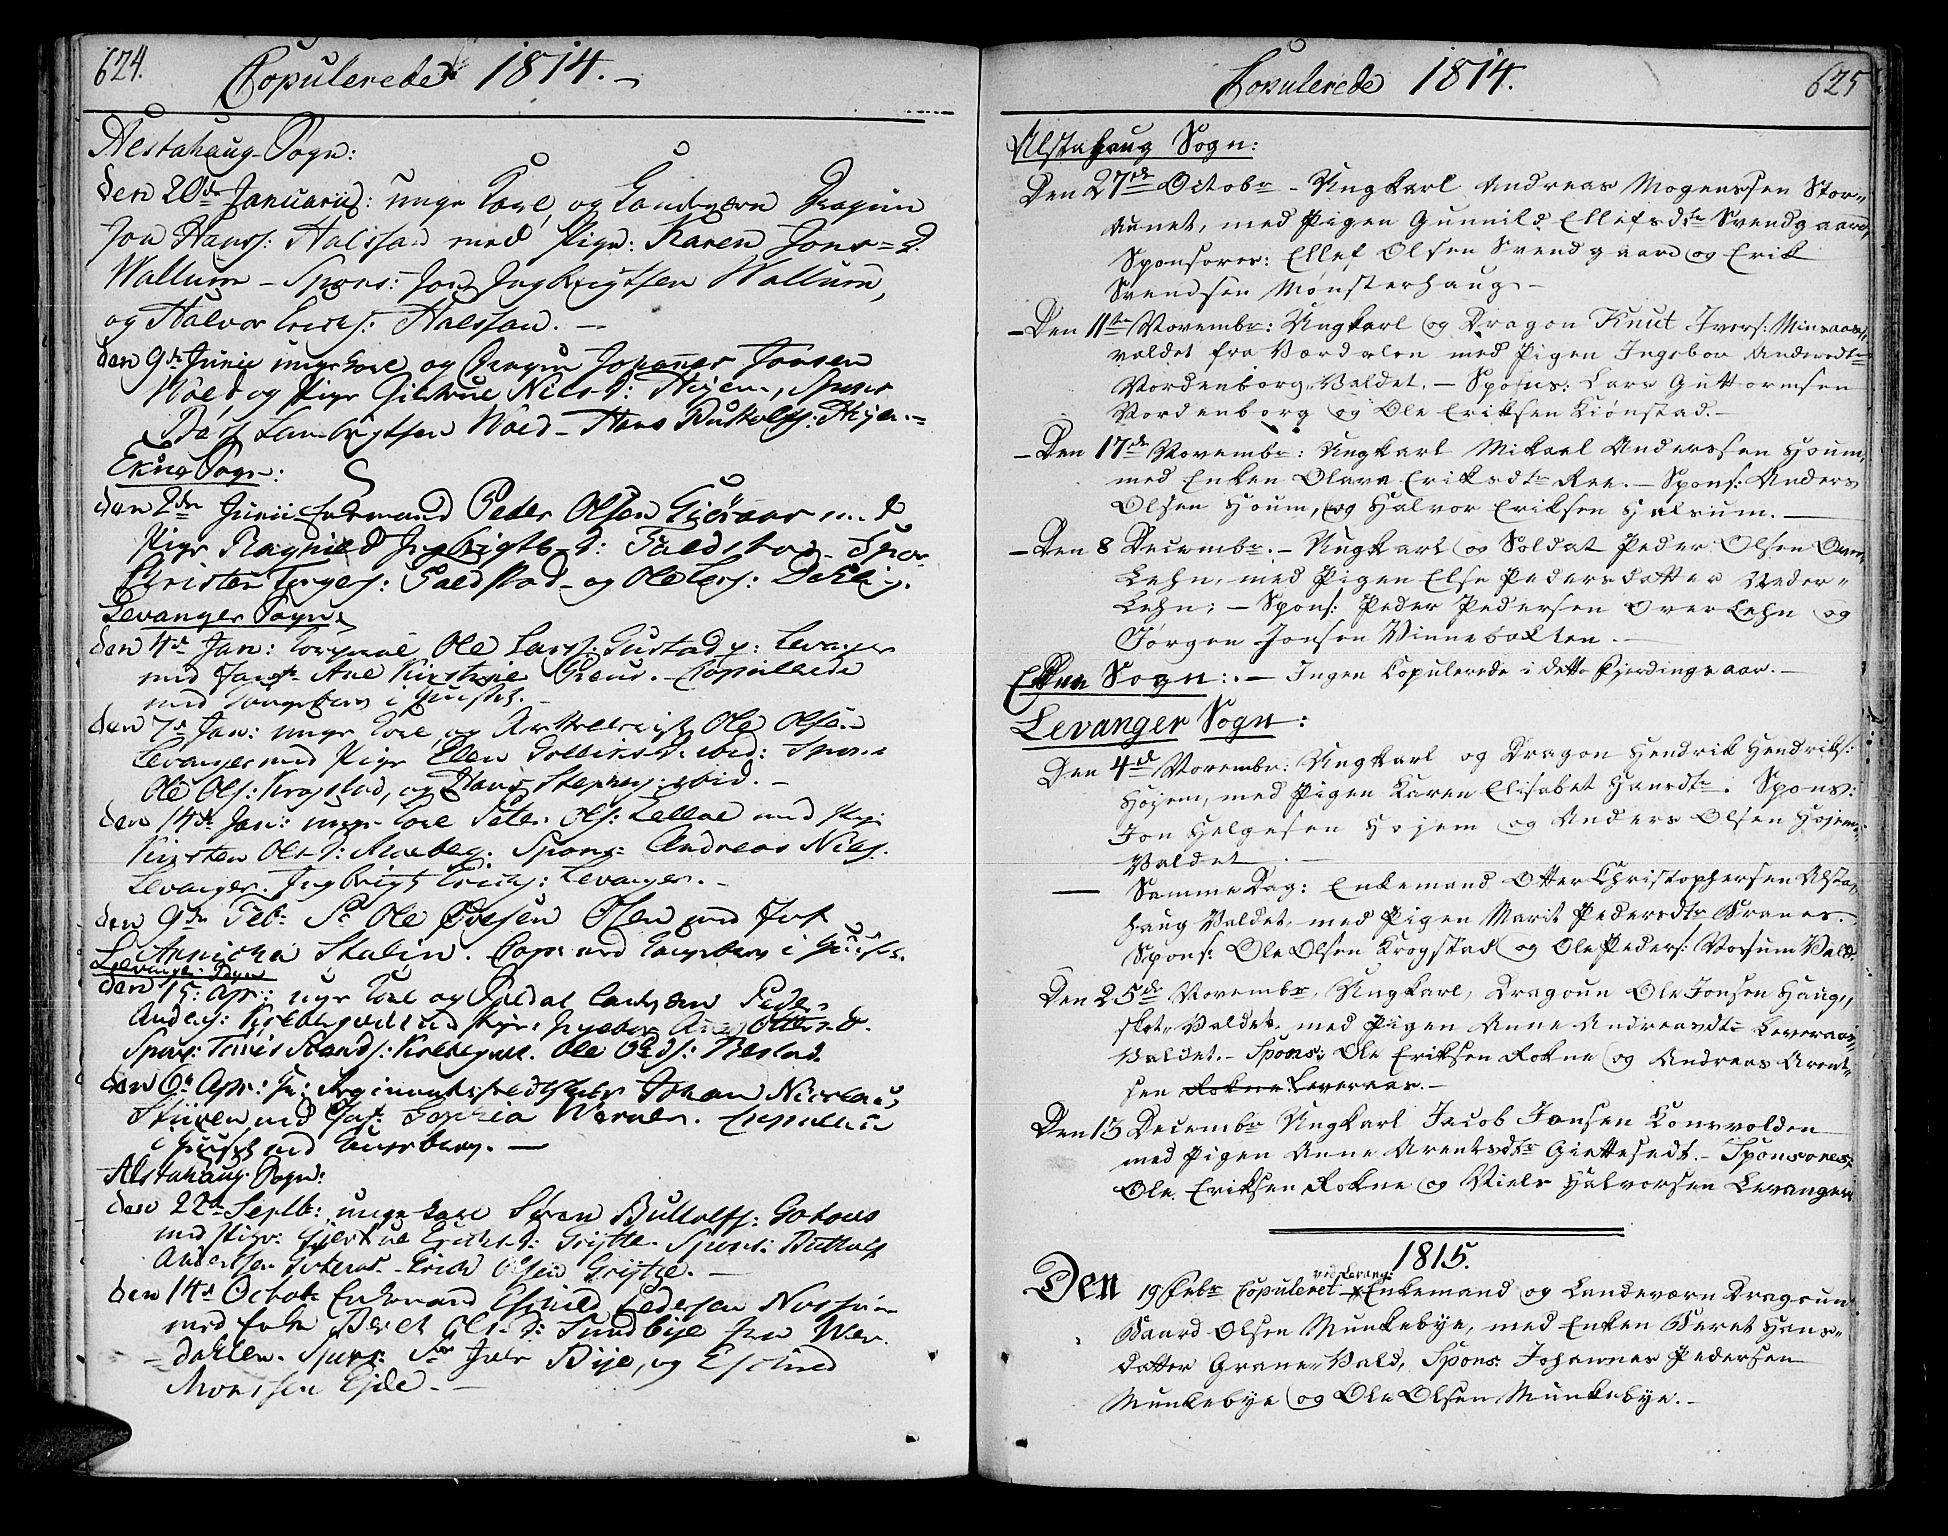 624.
Copulerede 1814. –
Alstahaug Sogn:
den 20de Januarii: unge Karl og Landværn Dragun
Jon Hanss: Halssan med Pigen: Karen Jons = D
Wallum – Spons: Jon Ingbrigtsen Wallum,
og Halvor Erichs: Halssan. –
den 9de Junii unge Karl og Dragun Johannes Jonsen
Wold og Pige Giertrue Niels D: Hojem, Spons
Baars Lambrigtsen Wold – Hans Hojem. –
Ekne Sogn:
den 2den Junii Enkemand Peder Olsen med
Pige Ragnild Ingbrigts D: Faldstad – Spons
Christen Fald stad – og Ole Lars:
Levanger Sogn
den 4de Jan: Ole Larss: Gustad p: Levanger
med Jomfr. Ane Kirstine – Copulerede
med Kongebrev i Huuset. –
den 7de Jan: unge Karl og Ole Olsen
Levanger med Pige Elen ibid: Spons
Ole Ols: Krogstad, og Hans Stephens: ibid. –
den 14de Jan: unge Karl Peter Ols: med Pige
Kirsten Ols D: Moebeg. Spons = Andreas Niels:
Levanger. Ingbrigt Erichs: Levanger. –
den 9de Feb: Sr Ole Olsen med Jomf
L Annicka Stalin. Cop: med Kongebrev i Huuset.
Levanger Sogn
den 15: Apr: unge Karl og Soldat Landværn Peder
Anders: med Pige: Ingebor
Spons: Ole
den 6te Apr: Hr: Johan Nicolaus
Stüven med Jomf: Sophia Werner. Copulerede
i Huuset med Kongebrev. –
Alstahaug Sogn:
den 22de Septb: unge Karl Sören Buttolfs:
med Pige: Giertrue Erichs D: Gristje. Spons: Buttolf
Andersen – Erich Olsen Gristje. –
den 14de Octob: Enkemand Eskild Pedersen Nossum
med Enke Beret Ols D: Sundbye fra Wer-
dahlen. Spons: Sr Iver Bye, og Eskild
Monssen Ejde. –
625
Copulerede 1814.
Alstahaug Sogn:
Den 27de Octobr – Ungkarl Andreas Mogenssen Stor-
aunet, med Pigen Gunnild Ellefsdtr Svendgaard,
Sponsores: Ellef Olsen Svendgaard og Erik
Svendsen Mønsterhaug –
– Den 11te Novembr: Ungkarl og Dragon Knut Ivers: Minsaas,,
valdet fra Værdalen med Pigen Ingebor Andersdtr
Nordenborg,,Valdet. – Spons: Lars Guttormsen
Nordenborg og Ole Eriksen Kiønstad. –
– Den 17de Novembr: Ungkarl Mikael Anderssen Houm,
med Enken Olava Eriksdtr Ree. – Spons: Anders
Olsen Houm, og Halvor Eriksen Halsum. –
– Den 8 Decembr. – Ungkarl og Soldat Peder Olsen Over
Lehn, med Pigen Else Pedersdatter Neder-
Lehn; – Spons: Peder Pedersen Over Lehn og
Jørgen Jonsen Vinnebakken. –
Ekne Sogn: – Ingen Copulerede i dette Fjerdingsaar. –
Levanger Sogn:
Den 4de Novembr: Ungkarl og Dragon Hendrik Hendriks:
Hojem, med Pigen Karen Elisabet Hansdtr. Spons:
Jon Helgesen Hojem og Anders Olsen Hojem-
Valdet. –
– Samme Dag: Enkemand Otter Christophersen Alsta-
haug Valdet, med Pigen Marit Pedersdtr Granes. –
Spons: Ole Olsen Krogstad og Ole Peders: Nossum Vald.
Den 25de Novembr. Ungkarl, Dragoun Ole Jonsen Haug,,
skot,,Valdet, med Pigen Anne Andreasdtr Leveraas,,
Valdet. – Spons: Ole Eriksen Rokne og Andreas Arent-
sen Rokne Leveraas. –
Den 13 Decembr Ungkarl Jacob Jonsen Konsvolden
med Pigen Anne Arentsdtr Giettesedt. – Sponsores:
Ole Eriksen Rokne og Niels Halvorsen Levanger
1815.
Den 19 Febr Copuleret ved Levang: Enkemand og Landeværn Dragoun
Baard Olsen Munkebye, med Enken Beret Hans-
datter Grane,,Vald, Spons. Johannes Pedersen
Munkebye og Ole Olsen Munkebye. –